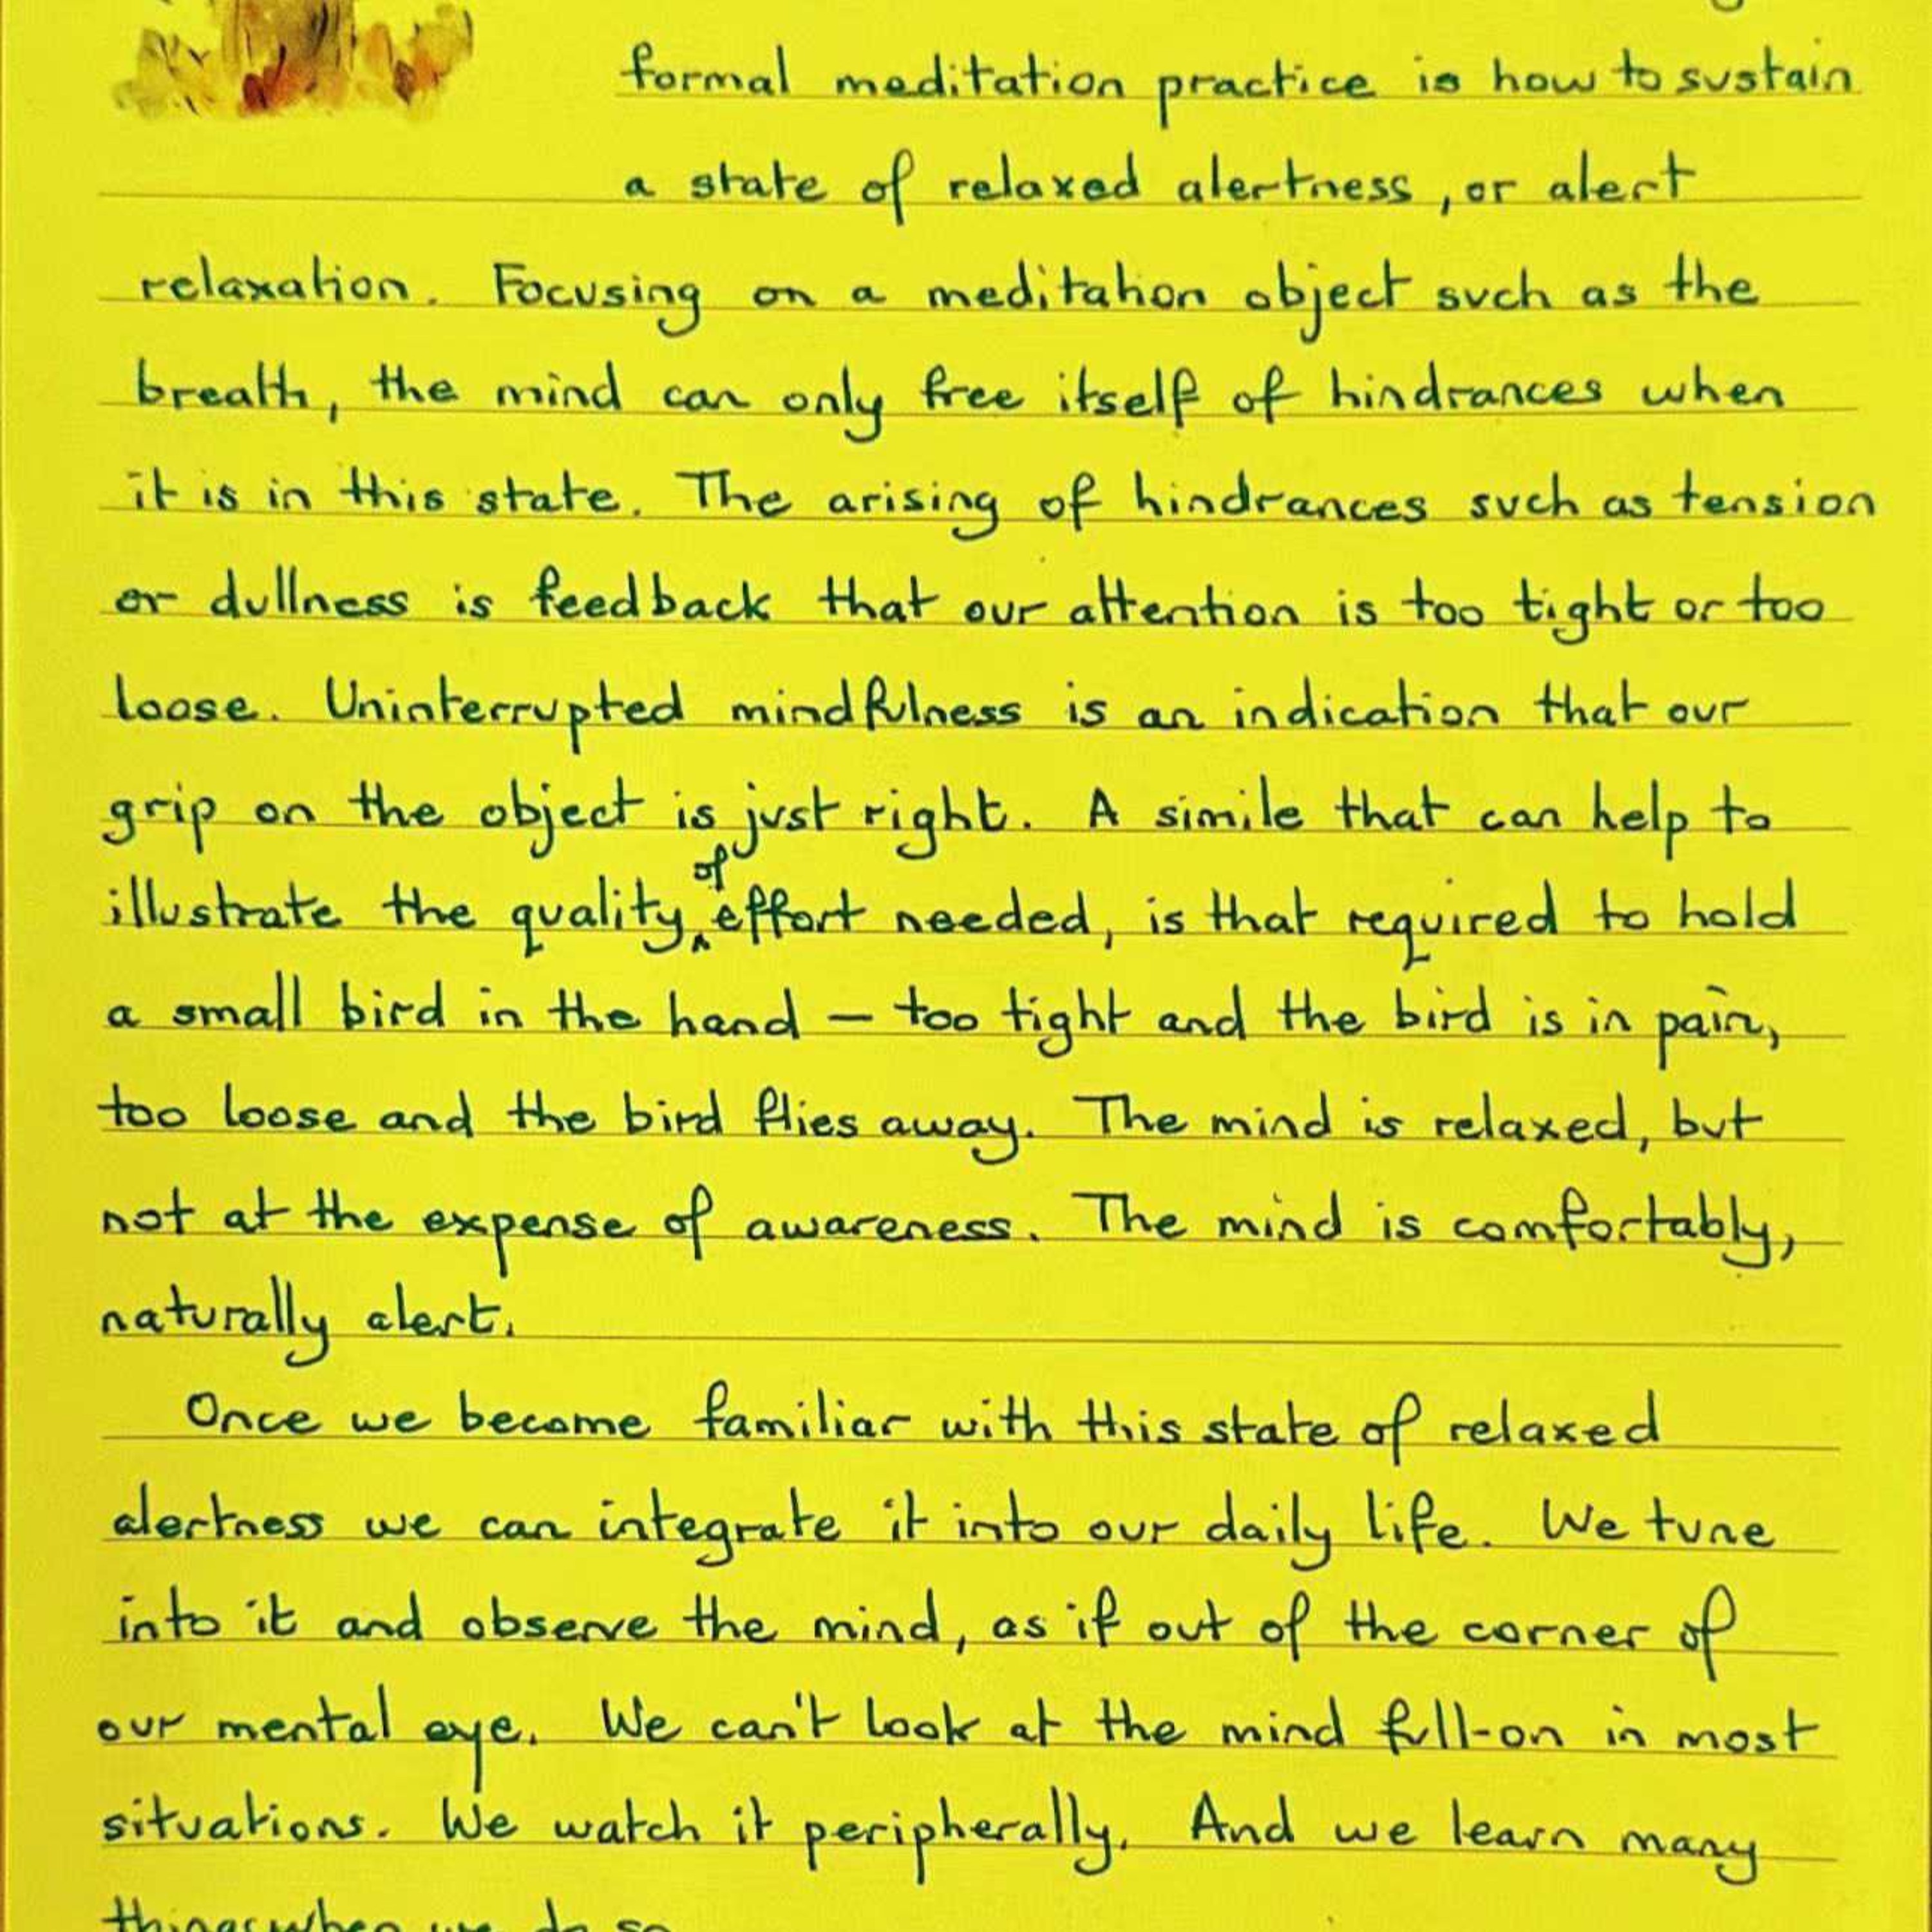 formal meditation practice is how to sustain
a state of relaxed alertness, or alert
relaxation. Focusing on a meditation object such as the
breath, the mind can only free itself of hindrances when
it is in this state. The arising of hindrances such as tension
or dullness is feedback that our attention is too tight or too
loose. Uninterrupted mindfulness is an indication that our
grip on the object is just right. A simile that can help to
illustrate the quality of effort needed, is that required to hold
a small bird in the hand – too tight and the bird is in pain,
too loose and the bird flies away. The mind is relaxed, but
not at the expense of awareness. The mind is comfortably,
naturally alert.
Once we become familiar with this state of relaxed
alertness we can integrate it into our daily life. We tune
into it and observe the mind, as if out of the corner of
our mental eye. We can't look at the mind full-on in most
situations. We watch it peripherally. And we learn many
things when we do so